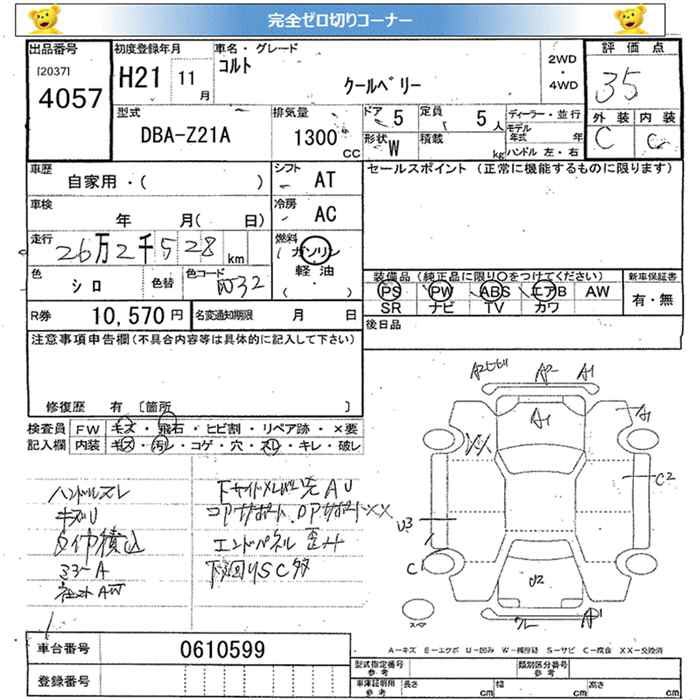 完全ゼロ切りコーナー
出品番号
[2037]
4057
初度登録年月
H21 11月
車名・グレード
コルト
クールベリー
2WD
・
4WD
評価点
35
外装 内装
C C
型式
DBA-Z21A
排気量
1300 CC
ドア 5
定員 5人
形状 W
積載 kg
ディーラー・並行
モデル年式 年
ハンドル 左・右
車歴
自家用・( )
シフト
AT
セールスポイント (正常に機能するものに限ります)
車検
年 月( 日)
冷房
AC
走行
26万2千528 km
燃料
ガソリン
軽油
( ・ )
色
シロ
色替
色コード
W32
装備品(純正品に限り○をつけてください)
PS PW ABS エアB AW
SR ナビ TV カワ
新車保証書
有・無
R券
10,570円
名変通知期限 月 日
後日品
注意事項申告欄(不具合内容等は具体的に記入して下さい)
修復歴 有 [箇所 ]
検査員 FW キズ・飛石・ヒビ割・リペア跡・×要
記入欄 内装 キズ・汚レ・コゲ・穴・スレ・キレ・破レ
ハンドルスレ
キズU
タイヤ積込
ミラーA
下サイドメンバー先AU
コアサポート、 XX
エンドパネル歪み
下廻りSC多
A2 A1
A1
A1
XX
C2
U3
C1
U2
A1
スペア
A-キズ E-エクボ U-凹み W-補修跡 S-サビ C-腐食 XX-交換済
車台番号
0610599
登録番号
型式指定番号
参考
類別区分番号
参考
車庫証明用
参考
長さ cm
幅 cm
高さ cm